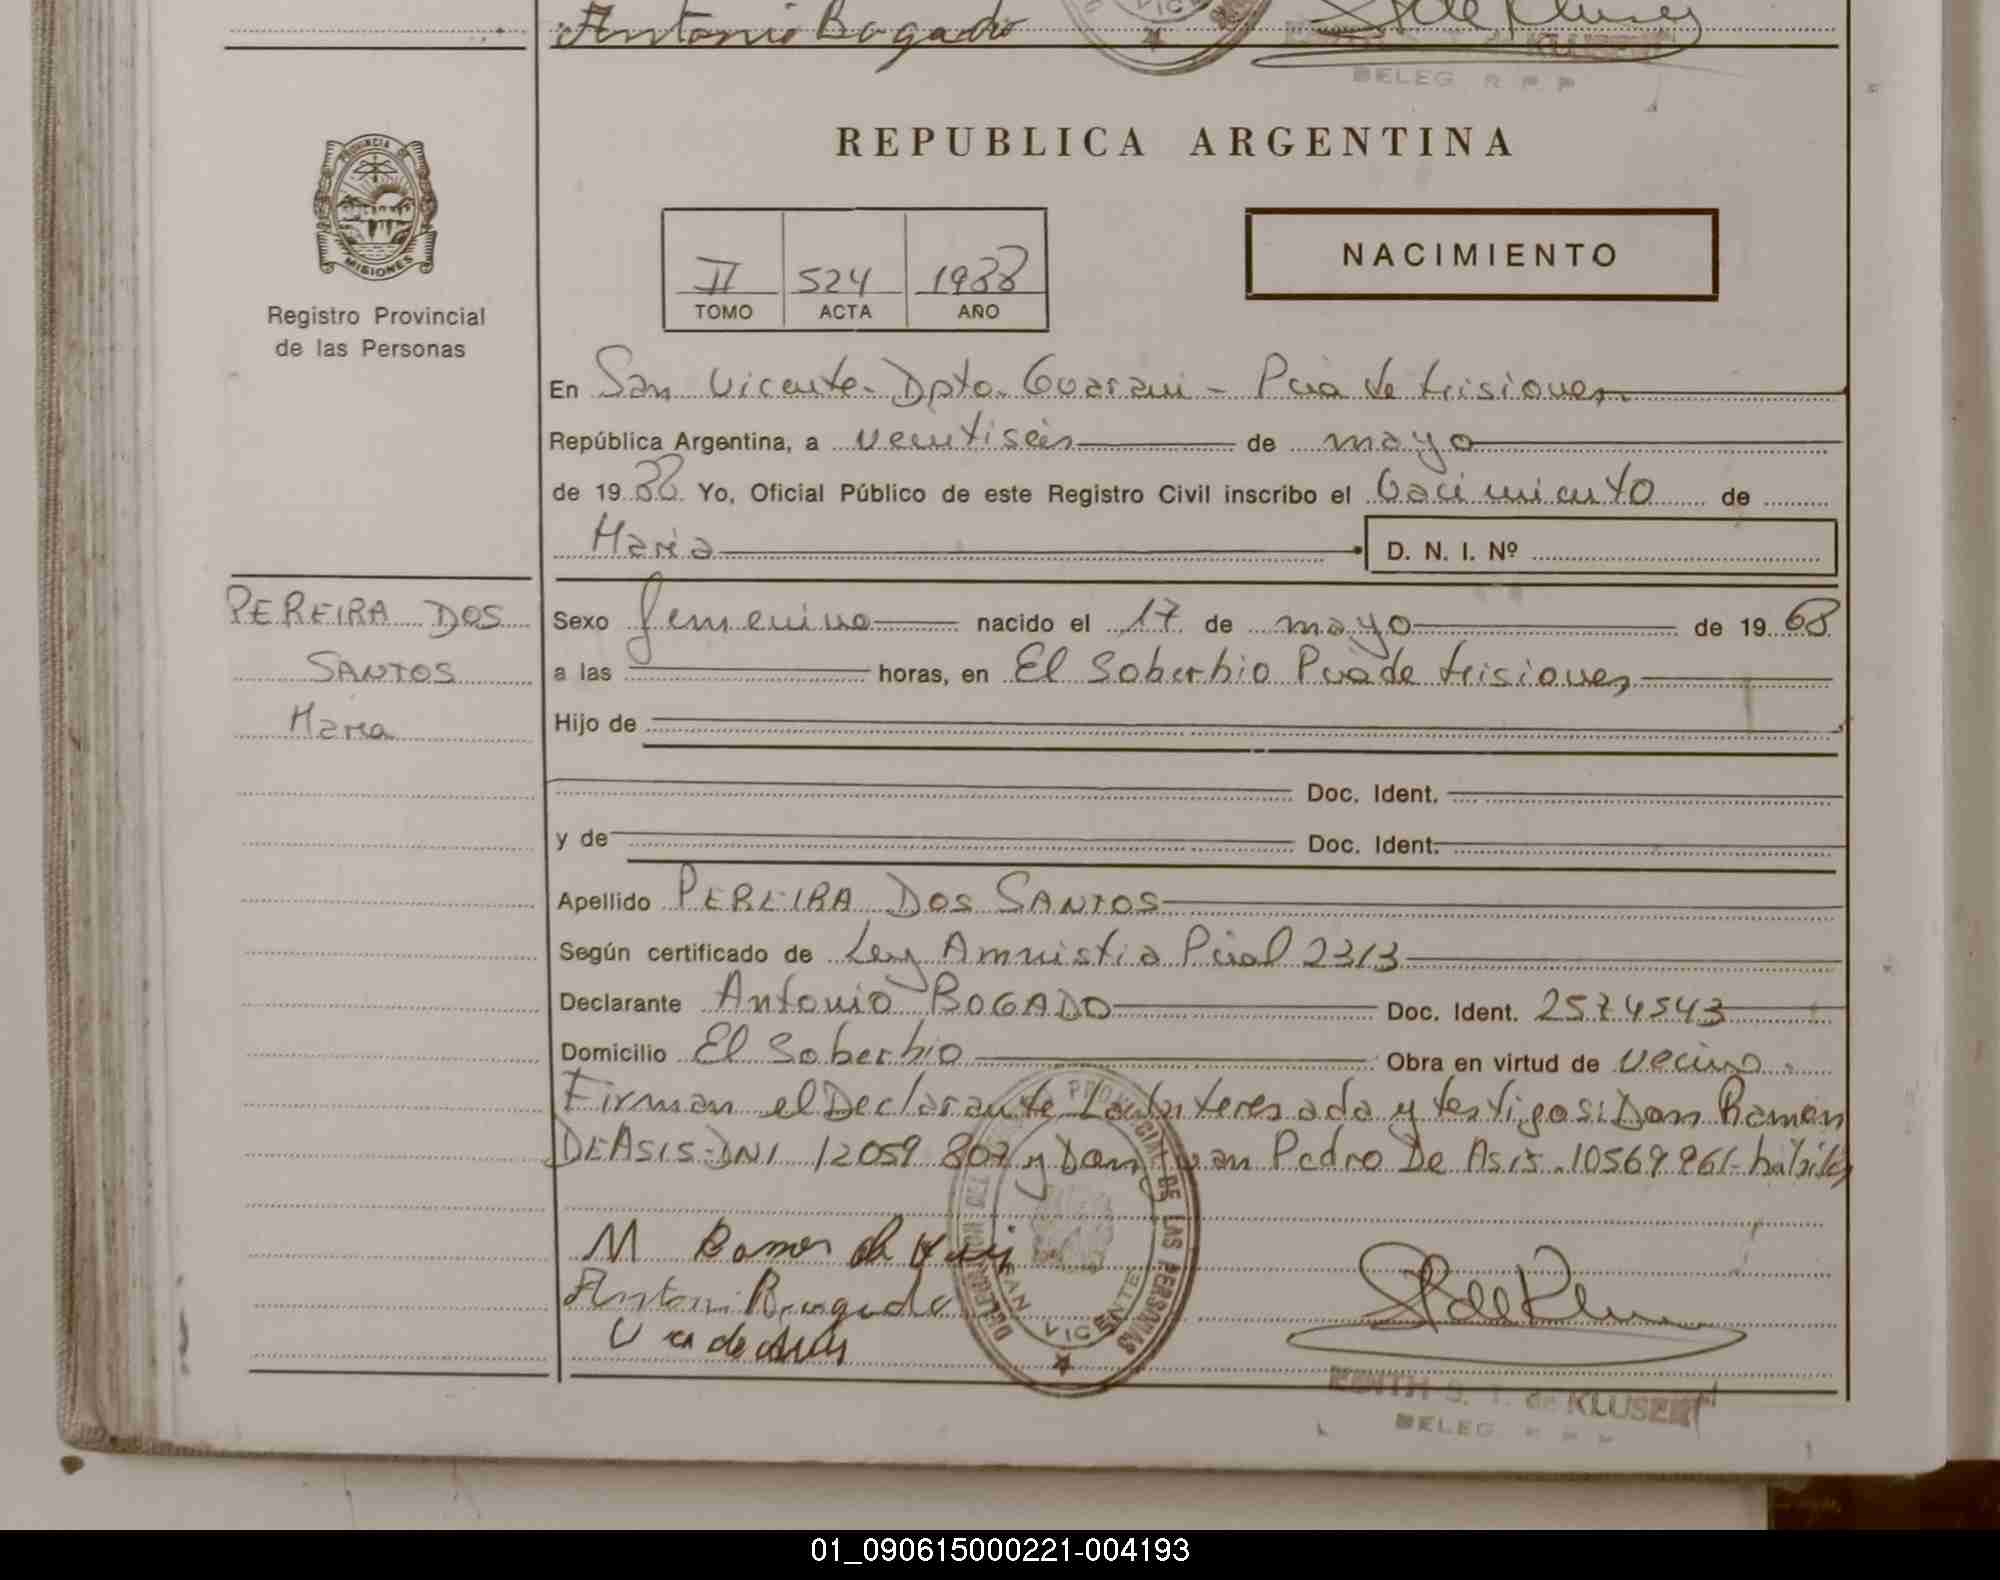 Antonio Bogado
KLUSENER
DELEG. R P P
PROVINCIA DE
MISIONES
Registro Provincial
de las Personas
REPUBLICA ARGENTINA
II 524 1988
TOMO ACTA AÑO
NACIMIENTO
En San Vicente - Dpto. Guarani - Pcia de Misiones
República Argentina, a veintiseis de mayo
de 19 88 Yo, Oficial Público de este Registro Civil inscribo el Nacimiento de
Maria D. N. I. Nº
PEREIRA DOS
SANTOS
Maria
Sexo femenino nacido el 17 de mayo de 19 68
a las horas, en El Soberbio Pcia de Misiones
Hijo de
Doc. Ident.
y de Doc. Ident.
Apellido PEREIRA DOS SANTOS
Según certificado de Ley Amnistia Pcial 2313
Declarante Antonio BOGADO Doc. Ident. 2574543
Domicilio El Soberbio Obra en virtud de vecino.
Firman el Declarante La Interesada y testigos: Don Ramon
DE ASIS - DNI 12059 807 y Don Juan Pedro De Asis. 10569261 - habiles
M Ramon de Asis
Antonio Bogado
de Asis
PROVINCIAL DE LAS PERSONAS
SAN VICENTE
EDITH B. T. de KLUSENER
DELEG. R P P
01_090615000221-004193